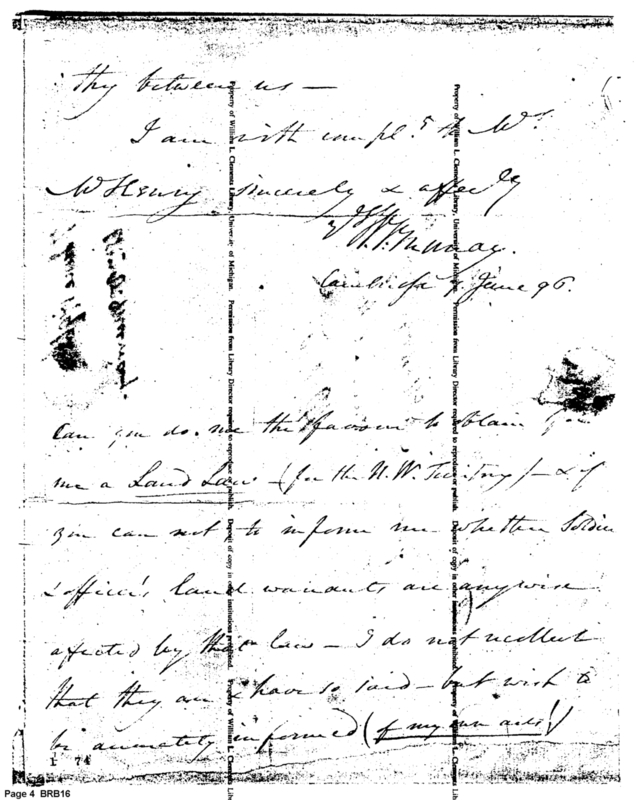 thy between us —
I am with compl.ts to Mrs.
McHenry sincerely & affecly
Murray.
7 June 96.
Can you do me the favour to obtain for
me a Land Law (for the N.W. Territory) — & if
you can not to inform me whether Soldiers
& officer's land warrants are any wise
affected by that law — I do not recollect
that they are & have so said — but wish to
be accurately informed (of my own acts!)
Property of William L. Clements Library, University of Michigan. Permission from Library Director required to reproduce or publish. Deposit of copy in other institutions prohibited.
Property of William L. Clements Library, University of Michigan. Permission from Library Director required to reproduce or publish. Deposit of copy in other institutions prohibited.
74
Page 4 BRB16